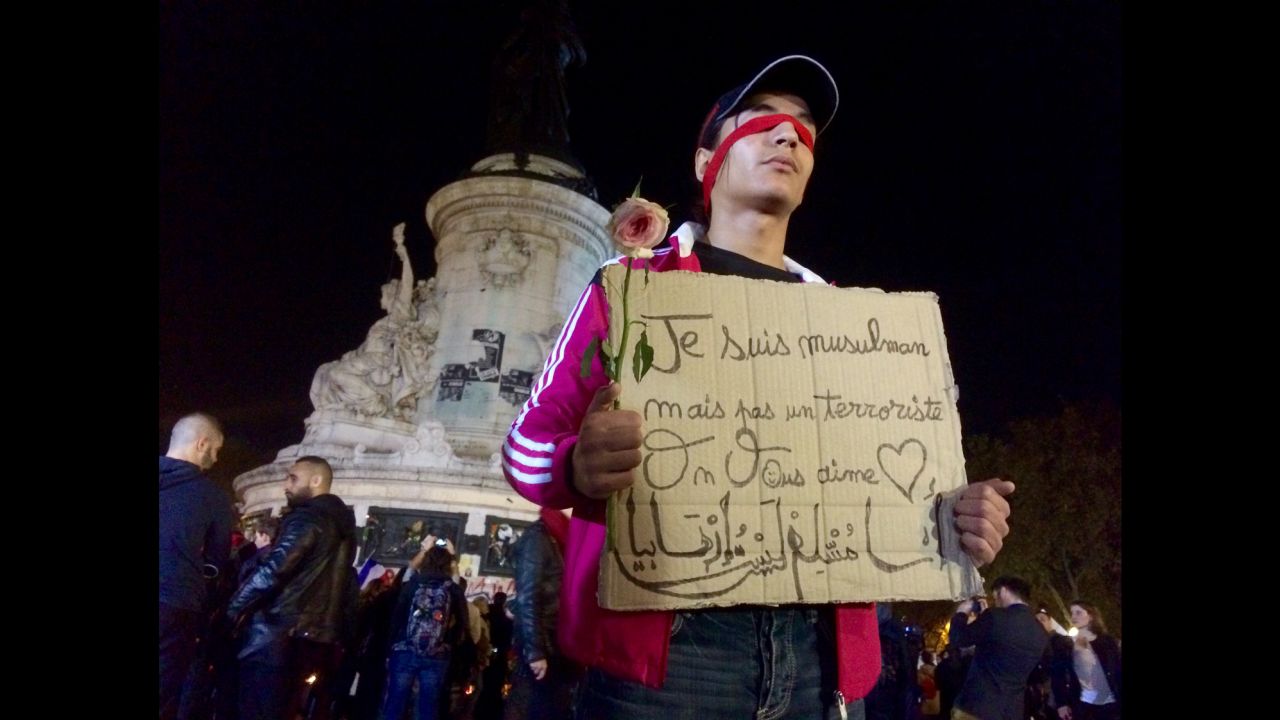 Je suis musulman
mais pas un terroriste
On Vous aime
أنا مُسْلِمْ لَيْسَ إِرْهَابِيا